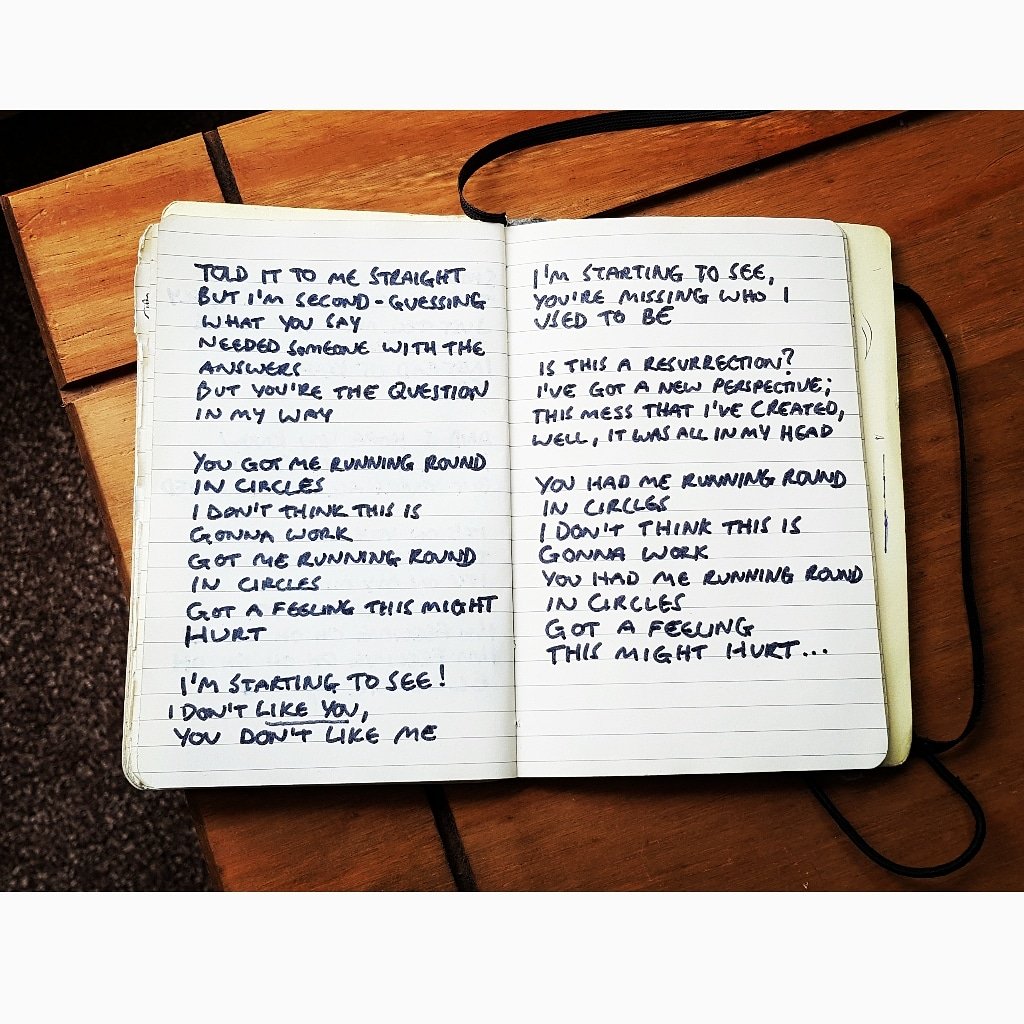 TOLD IT TO ME STRAIGHT
BUT I'M SECOND-GUESSING
WHAT YOU SAY
NEEDED SOMEONE WITH THE
ANSWERS
BUT YOU'RE THE QUESTION
IN MY WAY
YOU GOT ME RUNNING ROUND
IN CIRCLES
I DON'T THINK THIS IS
GONNA WORK
GOT ME RUNNING ROUND
IN CIRCLES
GOT A FEELING THIS MIGHT
HURT
I'M STARTING TO SEE!
I DON'T LIKE YOU,
YOU DON'T LIKE ME
I'M STARTING TO SEE,
YOU'RE MISSING WHO I
USED TO BE
IS THIS A RESURRECTION?
I'VE GOT A NEW PERSPECTIVE;
THIS MESS THAT I'VE CREATED,
WELL, IT WAS ALL IN MY HEAD
YOU HAD ME RUNNING ROUND
IN CIRCLES
I DON'T THINK THIS IS
GONNA WORK
YOU HAD ME RUNNING ROUND
IN CIRCLES
GOT A FEELING
THIS MIGHT HURT...